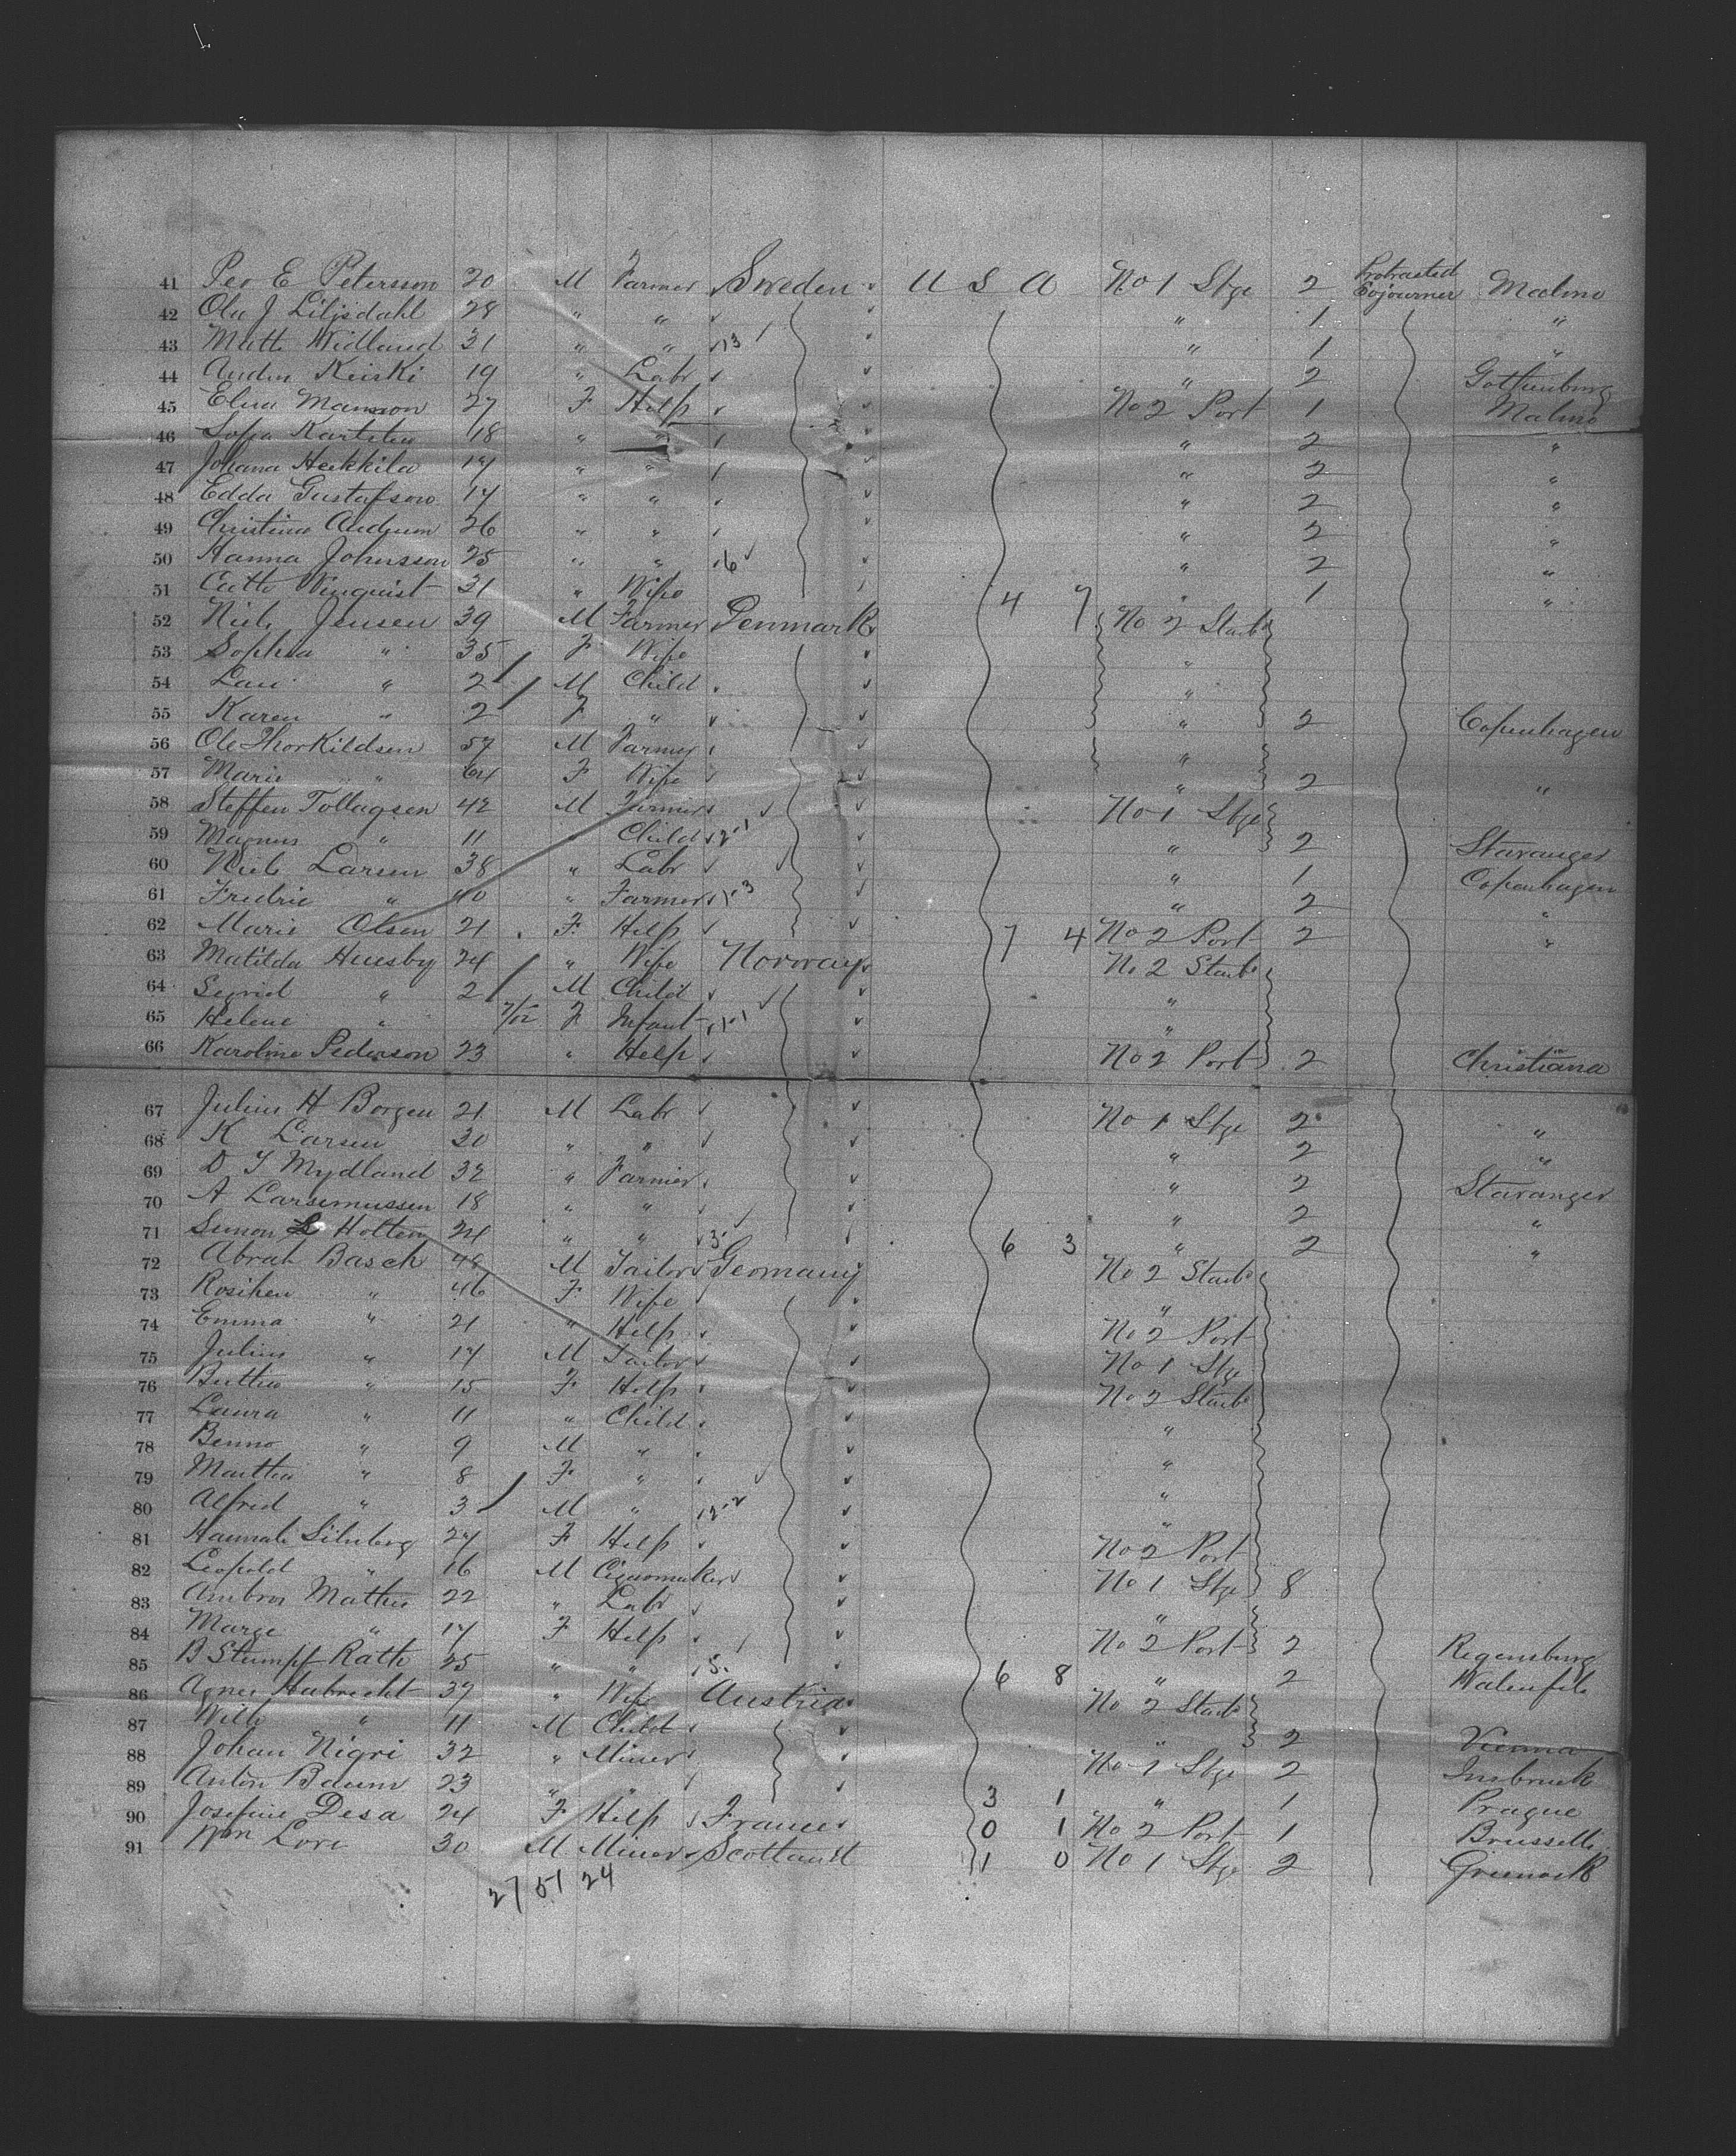 41 Per E Peterson 20 M Farmer Sweden U S A No 1 Stge 2 Protracted Sojourner Malmo
42 Ola J Liljedahl 28 " " " 1 "
43 Matts Widlund 31 " " 13 " 1 "
44 Keiski 19 " Labr " 2 Gothenburg
45 Elna Manson 27 F Help No 2 Port 1 Malmo
46 Sofia 18 " " " 2 "
47 Johana Heikkila 17 " " " 2 "
48 Edda Gustafson 17 " " " 2 "
49 Christina 26 " " " 2 "
50 Hanna Johnsson 25 " " 6 " 2 "
51 31 " Wife 4 7 " 1 "
52 Niels Jensen 39 M Farmer Denmark No 2 Starb
53 Sophia " 35 F Wife "
54 " 2 M Child "
55 Karen " 2 F " " 2 Copenhagen
56 Ole Thorkildsen 57 M Farmer "
57 Marie " 64 F Wife " 2 "
58 Steffen Tollagsen 42 M Farmer No 1 Stge
59 Magnus " 11 Child 2-1 " 2 Stavanger
60 Niels Larsen 38 " Labr " 1 Copenhagen
61 Fredric " 40 " Farmer 1-3 " 2 "
62 Marie Olsen 21 F Help 7 4 No 2 Port 2 "
63 Matilda Huseby 24 " Wife Norway No 2 Starb
64 Sigrid " 2 M Child "
65 Helene " 7/12 F Infant 1-1 "
66 Karoline Pederson 23 " Help No 2 Port 2 Christiana
67 Julius H Borgen 21 M Labr No 1 Stge 2 "
68 K Larsen 30 " " " 2 "
69 D T Mydland 32 " Farmer " 2 Stavanger
70 A Larsemussen 18 " " " 2 "
71 Simon L Holten 24 " " 3 6 3 " 2 "
72 Abrah Basch 48 M Tailor Germany No 2 Starb
73 Rosiken " 46 F Wife "
74 Emma " 21 " Help No 2 Port
75 Julius " 17 M Tailor No 1 Stge
76 " 15 F Help No 2 Starb
77 Laura " 11 " Child "
78 Benno " 9 M " "
79 Martha " 8 F " "
80 Alfred " 3 M " 2-2 "
81 Hannah Silnberg 27 F Help No 2 Port
82 Leopold " 16 M Cigarmaker No 1 Stge 8
83 Ambros 22 " Labr "
84 Marge " 17 F Help No 2 Port 2 Regensburg
85 B Stumpf Rath 25 " " 5 6 8 " 2
86 Agnes Habrecht 37 " Wife Austria No 2 Starb
87 " 11 M Child " 2 Vienna
88 Johan Nigri 32 " Miner No 1 Stge 2 Insbruck
89 Anton 23 " " 3 1 " 1 Prague
90 Josefine Desa 24 F Help France 0 1 No 2 Port 1 Brussells
91 Wm Love 30 M Miner Scotland 1 0 No 1 Stge 2 Greenock
27 51 24